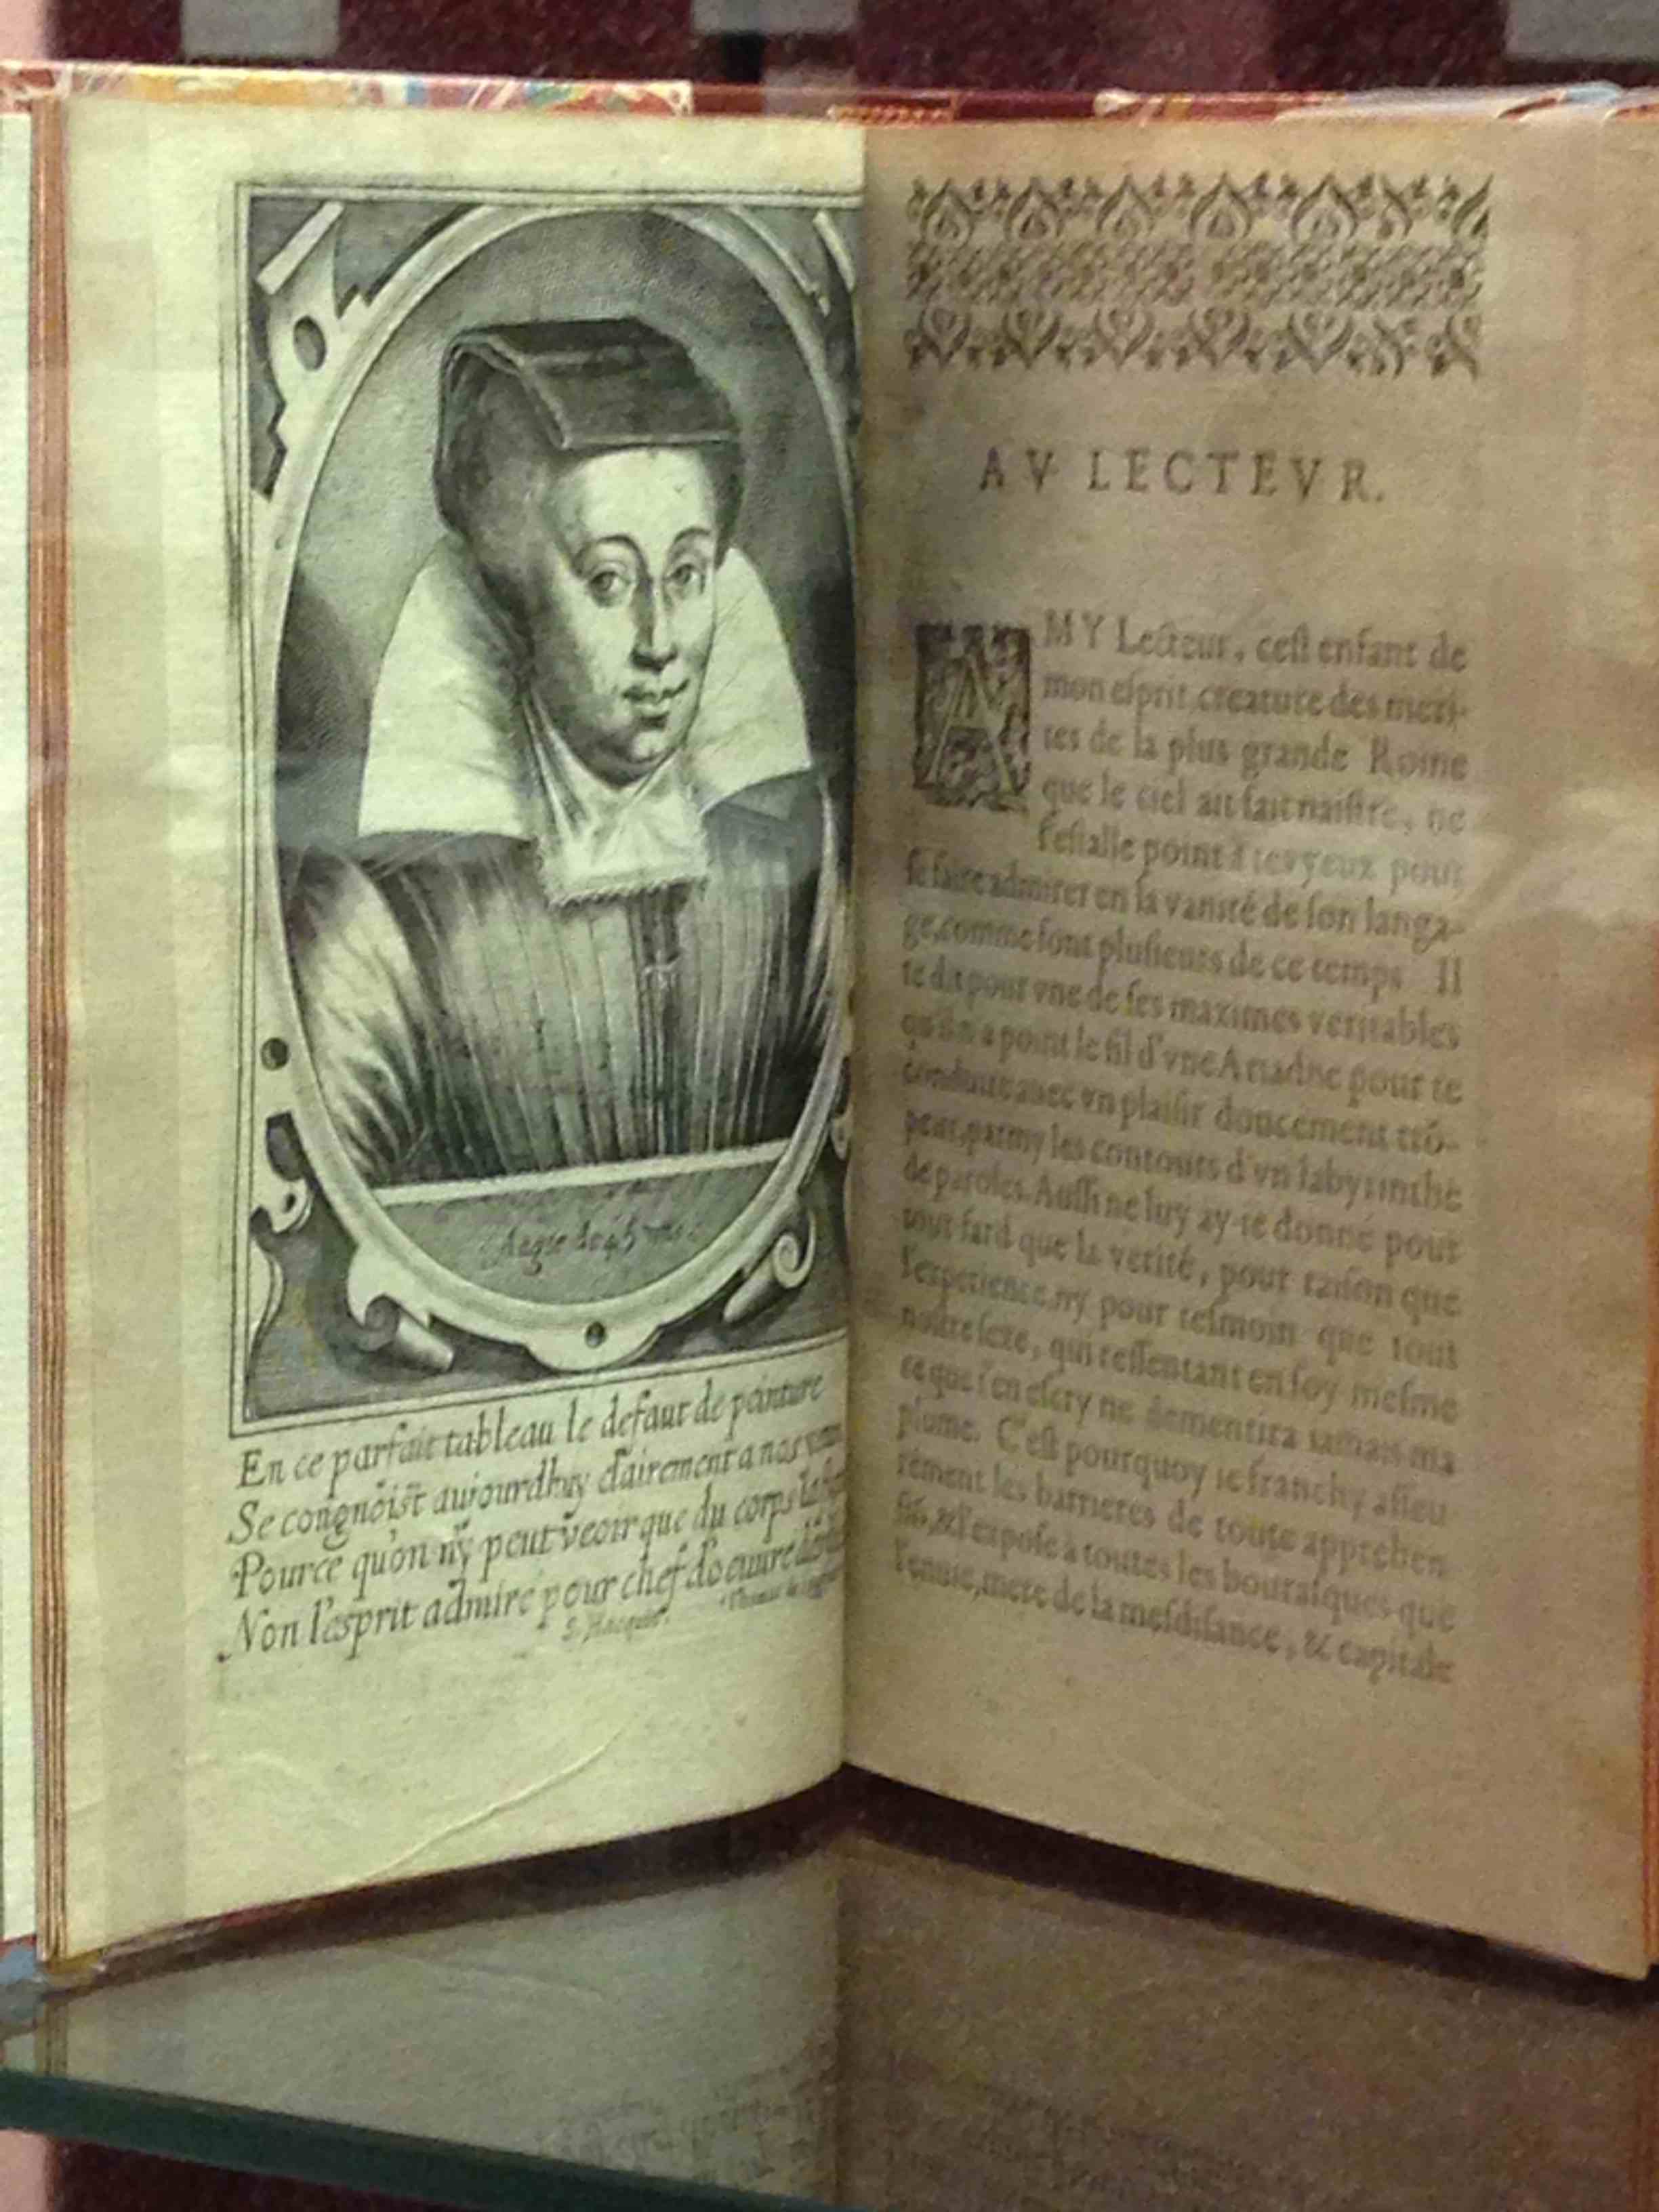 Aagee de 45 ans
En ce parfait tableau le defaut de peinture
Se congnoist aujourdhuy clairement a nos
Pource qu'on ny peut veoir que du corps la
Non l'esprit admire pour chef d'oeuure
S. Hacquin. Thomas de
AV LECTEVR.
AMY Lecteur, cest enfant de
mon esprit, creature des meri-
tes de la plus grande Rome
que le ciel ait fait naistre, ne
s'estalle point à tes yeux pour
se faire admirer en la vanité de son langa-
ge, comme font plusieurs de ce temps. Il
te dit pour vne de ses maximes veritables
qu'il n'a point le fil d'vne Ariadne pour te
conduire auec vn plaisir doucement trõ-
peur, parmy les contours d'vn labyrinthe
de paroles. Aussi ne luy ay-ie donné pour
tout fard que la verité, pour raison que
l'experience, ny pour tesmoin que tout
nostre sexe, qui ressentant en soy mesme
ce que i'en escry ne dementira iamais ma
plume. C'est pourquoy ie franchy asseu
rément les barrieres de toute apprehen
siõ, & l'expose à toutes les bourasques que
l'enuie, mere de la mesdisance, & capitale